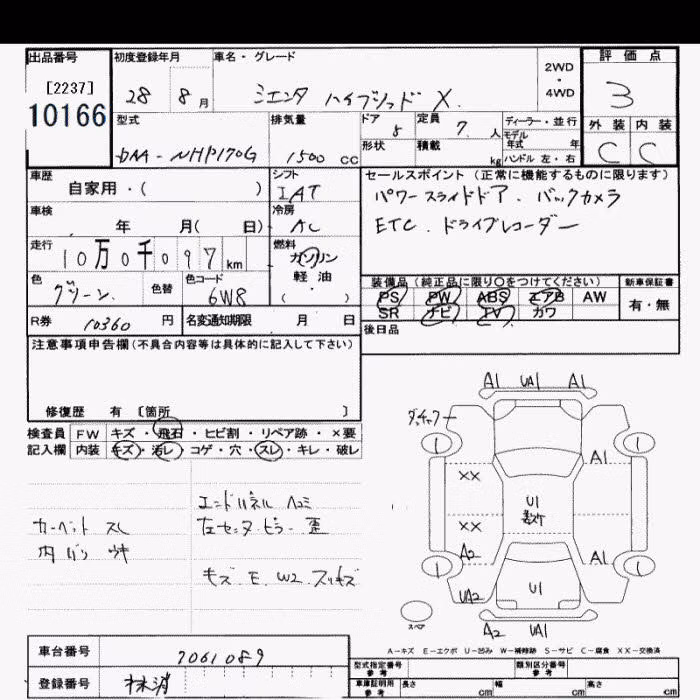 出品番号 初度登録年月 車名・グレード 評価点
[2237] 28 8月 シエンタ ハイブリッド X 2WD・4WD 3
10166
型式 排気量 ドア 5 定員 7人 ディーラー・並行 外装 内装
モデル年式 年
DAA-NHP170G 1500 CC 形状 積載 kg ハンドル 左・右 C C
車歴 シフト セールスポイント (正常に機能するものに限ります)
自家用・( ) IAT パワースライドドア.バックカメラ
車検 冷房 ETC.ドライブレコーダー
年 月( 日) AC
走行 燃料
10万0千097km ガソリン
軽・油
( ・ )
色 色替 色コード 装備品(純正品に限り○をつけてください) 新車保証書
グリーン. 6W8 PS PW ABS エアB AW 有・無
SR ナビ TV カワ
R券 10360 円 名変通知期限 月 日 後日品
注意事項申告欄(不具合内容等は具体的に記入して下さい)
修復歴 有 〔箇所 〕
検査員 FW キズ・飛石・ヒビ割・リペア跡・×要
記入欄 内装 キズ・汚レ・コゲ・穴・スレ・キレ・破レ
A1 UA1 A1
A1
XX
U1
XX
A2 A1
UA2 U1
A2 UA1
スペア
カーペット スレ
エンドパネル ヘコミ
左センターピラー 歪
キズ.E.W2.スリキズ
A-キズ E-エクボ U-凹み W-補修跡 S-サビ C-腐食 XX-交換済
車台番号 7061089
登録番号 抹消
型式指定番号 参考 類別区分番号 参考
車庫証明用 参考 長さ cm 幅 cm 高さ cm